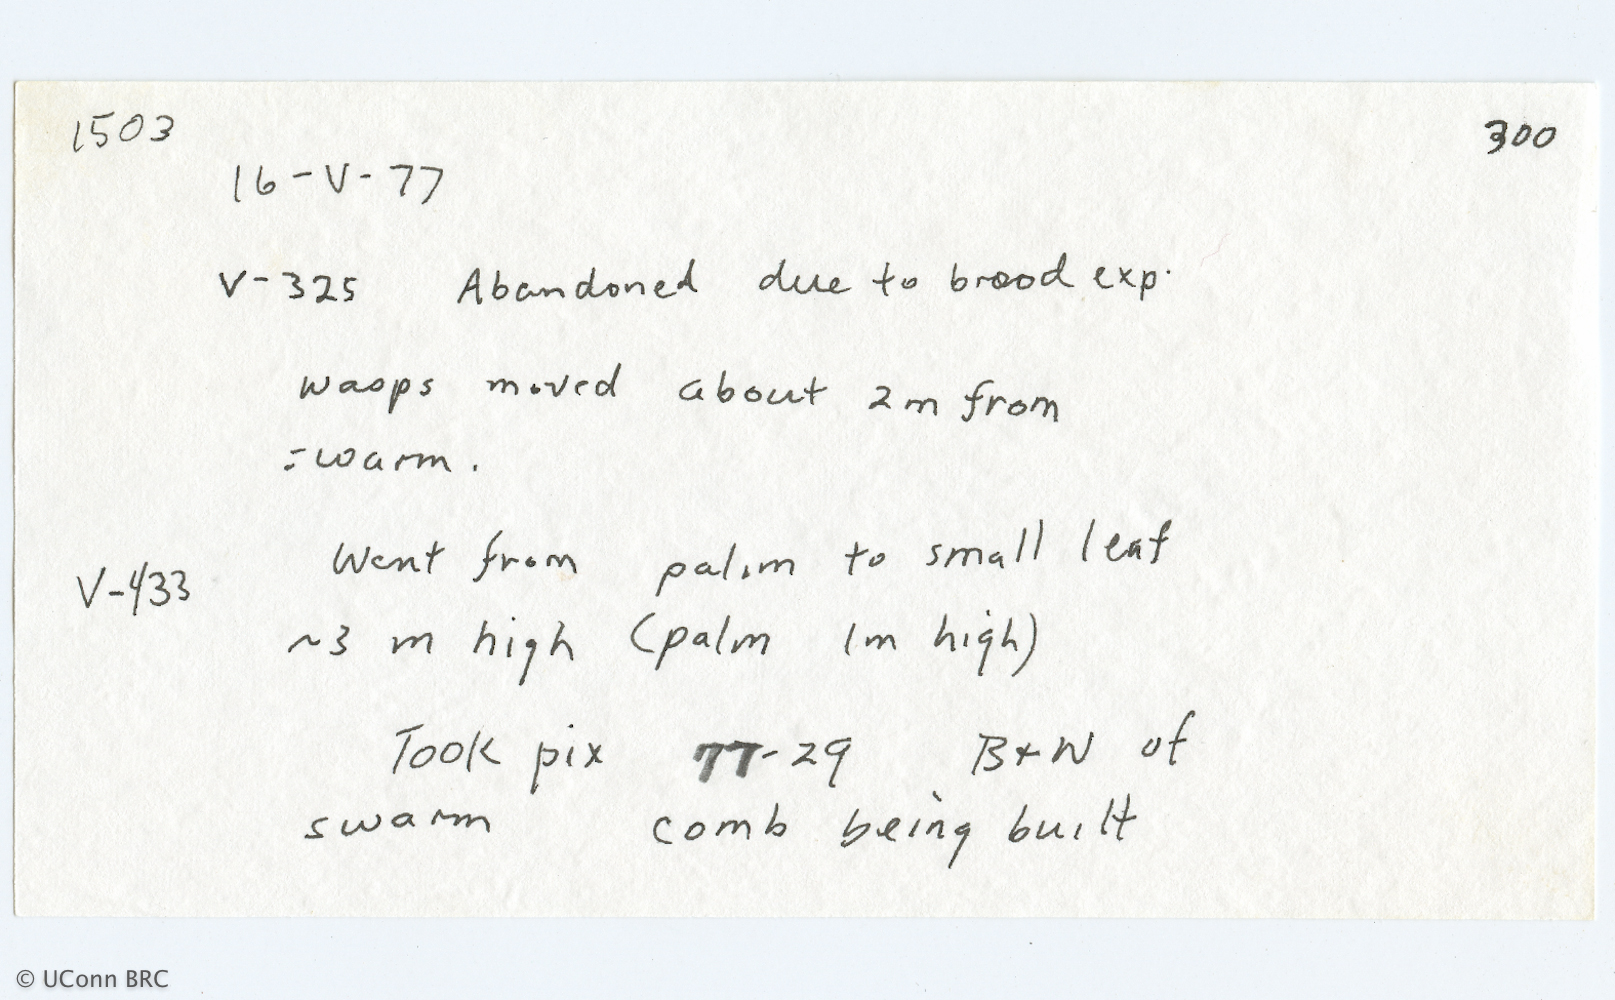 1503 300
16-V-77
V-325 Abandoned due to brood exp.
wasps moved about 2m from
swarm.
Went from palm to small leaf
V-433
~3 m high (palm 1m high)
Took pix 77-29 B+W of
swarm comb being built
© UConn BRC